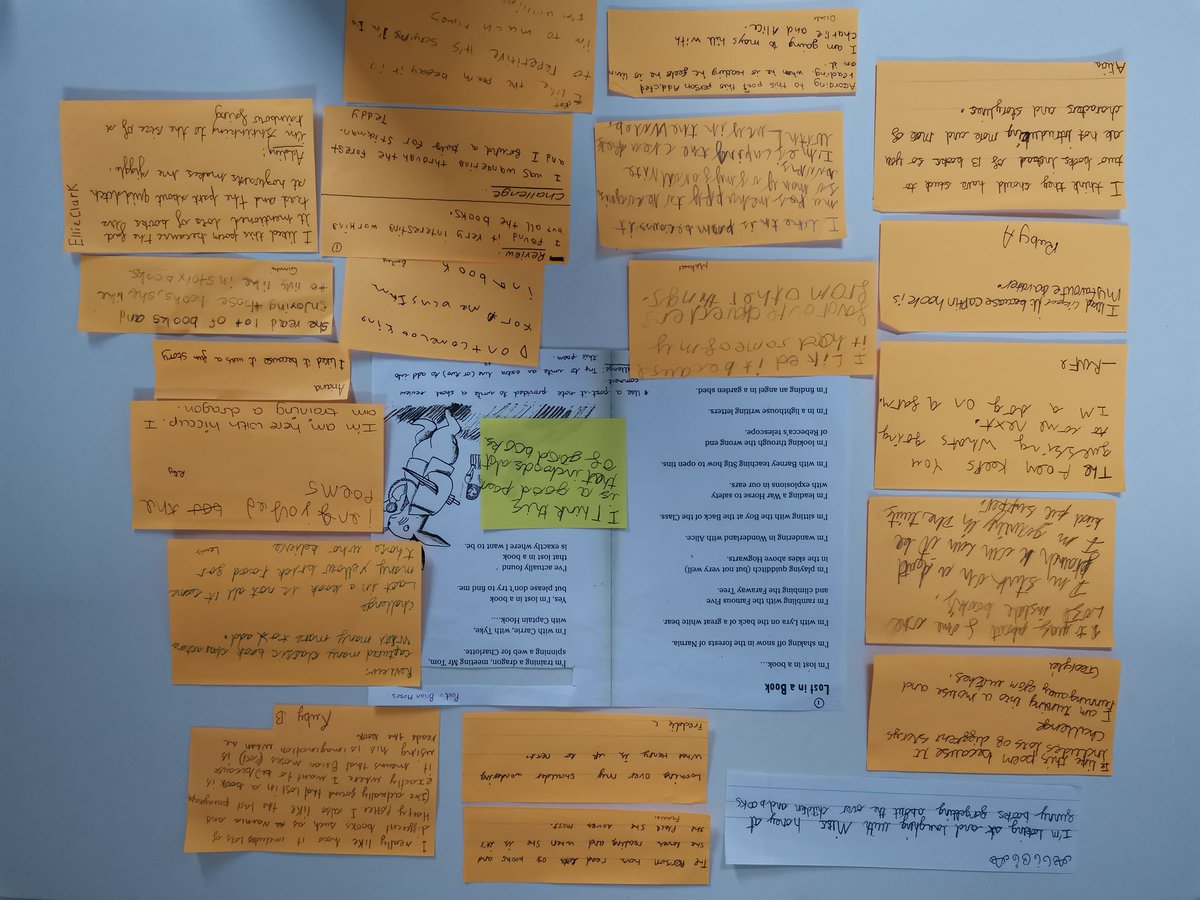 ①
Lost in a Book
I'm lost in a book...
I'm shaking off snow in the forests of Narnia.
I'm with Lyra on the back of a great white bear.
I'm rambling with the Famous Five
and climbing the Faraway Tree.
I'm playing quidditch (but not very well)
in the skies above Hogwarts.
I'm wandering in Wonderland with Alice.
I'm sitting with the Boy at the Back of the Class.
I'm leading a War Horse to safety
with explosions in our ears.
I'm with Barney teaching Stig how to open tins.
I'm looking through the wrong end
of Rebecca's telescope.
I'm in a lighthouse writing letters.
I'm finding an angel in a garden shed.
Poet: Brian Moses
I'm training a dragon, meeting Mr Tom,
spinning a web for Charlotte
I'm with Carrie, with Tyke,
with Captain Hook....
Yes, I'm lost in a book
but please don't try to find me.
I've actually found
that lost in a book
is exactly where I want to be.
I Think this
is a good poem
that includes alot
of good books.
* Use a post it note provided to write a short review
comment
Challenge: Try to write an extra line (or two) to add into
this poem.
I'm looking at and laughing with Miss honey at
funny books forgetting about the over children and books
The Person has read lots of books and
she loves reading and when she is it's
the place she loves most.
Freddie
Looking over my shoulder wondering
what Henry is up to next.
Freddie C
Ruby B
I really like how it includes lots of
different books such as Narnia and
Harry Potter. I also like the last paragraph
(I've actually found that lost in a book is
exactly where I want to be) because
it means that Brian Moses (Poet) is
using his imagination when he
reads the book.
I like this poem because It
includes lots of different storys
Challenge
I am turning into a mouse and
running away from witches.
Georgia
It is about some one
Lost inside books,
I'm stuck on a
The Poem keeps you
guessing whats going
to come next.
I'M a dog on a farm.
I liked it because captin hook is
my favourite baverter.
Ruby A
I think they should have stuck to
two books instead of 13 books so you
are not intruding more and more of
characters and storylines.
Alicia
I Liked it because
it had some of my
favourite
from other things.
I like this poem because it
makes me happy
so many of my favourite
I'm escaping the
with Emily in the water,
According to this poem this person addicted
reading when he is reading he feels he is livin
on it.
I am going to mays hill with
charlie and Alice.
Review:
captured many classic book characters
with many more to add.
Challenge
Lost in a book is not all it seems
many yellow brick road for
those who believe
Lewis
i enjoyed the
poems
Riley
I'm am, here with hiccup. I
am training a dragon.
Ariana
I Liked it because it was a fun story
She read lot of books and
enjoying those books, she like
to live like in story books
Dont come looking
for me wens Im
in a book
Bailey
①
Review:
I found it very interesting working
out all the books.
challenge:
I was wandering through the forest
and I found a party for Stickman.
Teddy
Ellie Clark
I liked this poem because the God
It mentioned lots of books Ive
read and the part about quidditch
at hogwarts makes me giggle.
Adding:
I'm Shrinking to the size of a
rainbow spring
I like the poem because it is
to repetitive it's saying I'm In
I'm to much times